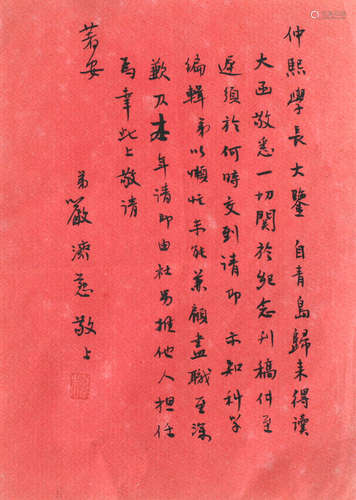 仲熙學長大鑒自青島歸来得讀
大函敬悉一切関於紀念刊稿件至
遲須於何時交到請即示知科学
編輯弟以懶忙未能兼顧盡職至深
歉仄本年請即由杜另推他人担任
為幸此上敬請
著安
弟嚴濟慈敬上